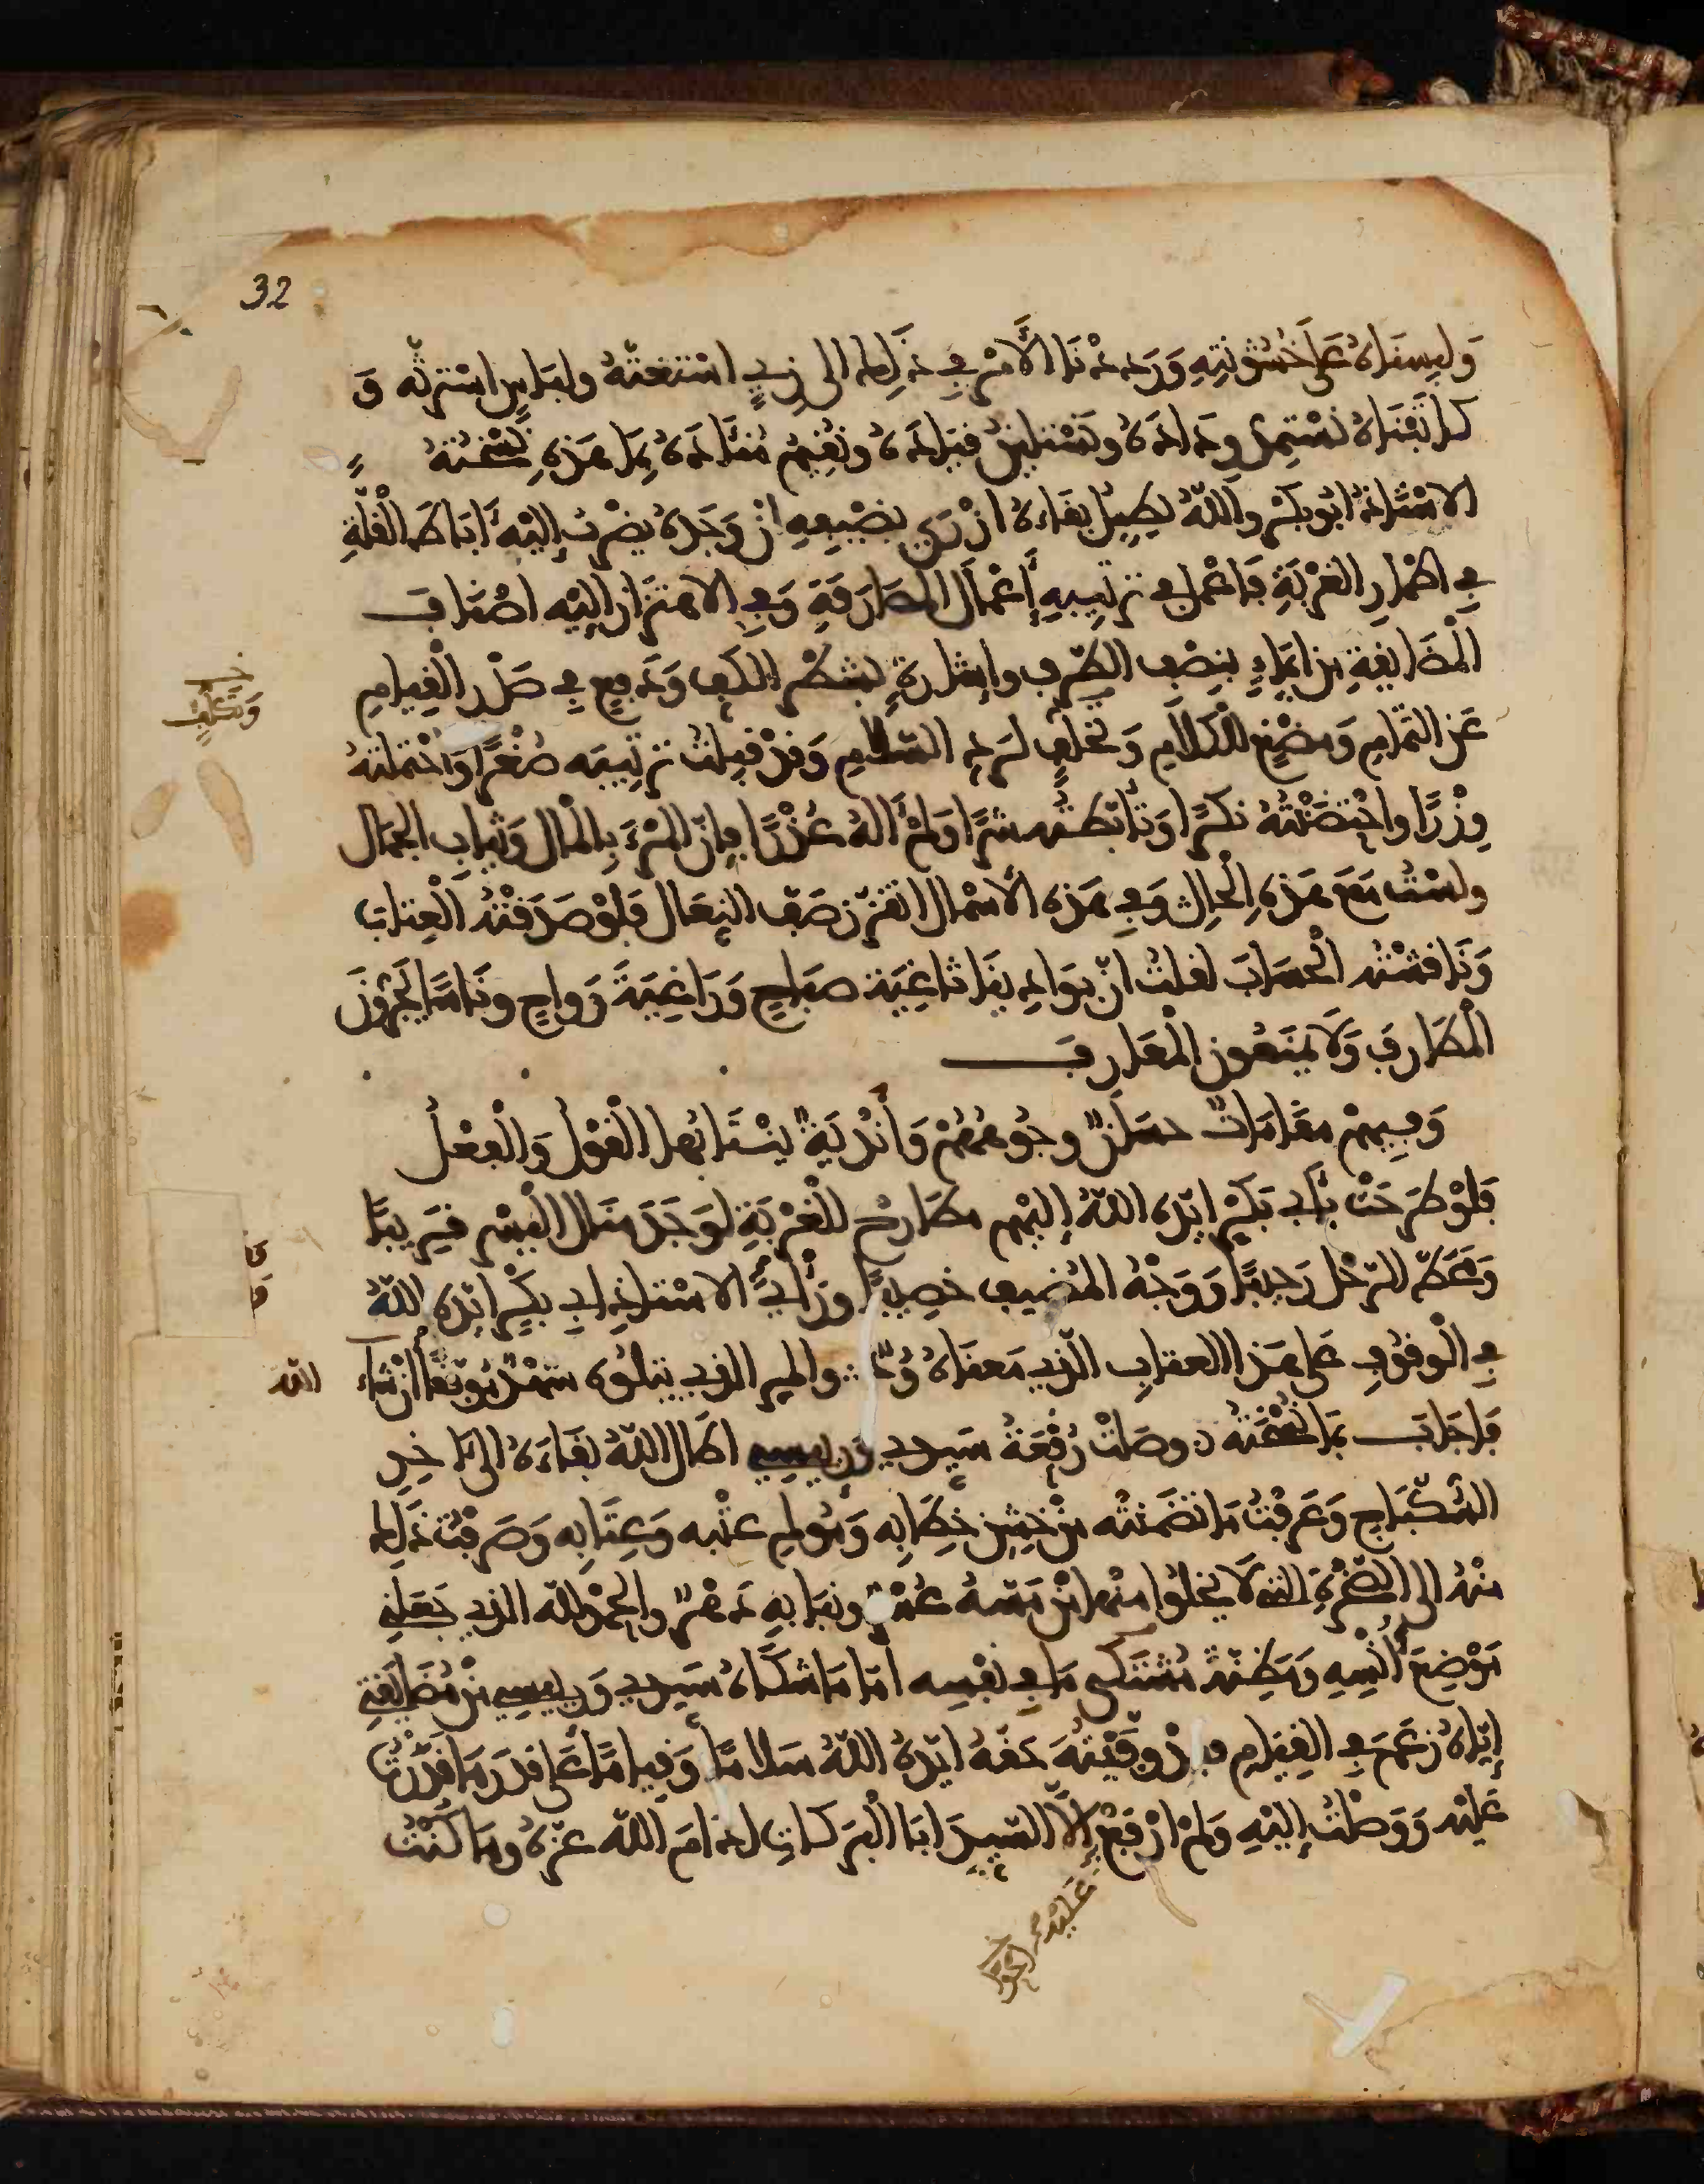 32
وَلَبِسْنَاهُ عَلَى خُشُونَتِهِ وَرَدَدْنَا الأَمْرَ فِي ذَلِكَ الى زِيٍّ اسْتَغَثَّهُ ولباسٍ اسْتَرَثَّه وَ
كاتَبْنَاهُ نَسْتَمِدُّ وِدَادَهُ ونَسْتَلِينُ قِيَادَهُ ونُقِيمُ مُنْآدَهُ بِمَا هَذِهِ نُسْخَتُهُ
الاسْتَاذُ ابُو بكْرٍ واللهُ يُطِيلُ بقَاءَهُ ازْرَى بضَيْفِهِ انْ وَجَدَهُ يضْرِبُ إِلَيْهِ ءَابَاطَ الْقِلَّةِ
فِي اطْمَارِ الغُرْبَةِ فَاعْمَلَ فِي تَرْتِيبِهِ أَعْمَالَ المصَارَفَةِ وَفِي الاهتِزَازِ إِلَيْهِ اصْنَافَ
الْمُضَايَقَةِ من ايمَاءٍ بنِصْفِ الطَّرْفِ وإِشارةٍ بشَطْرِ الكَفِّ وَدَفْعٍ فِي صَدْرِ الْقِيَامِ
خـ وَتَكَلُّفٍ
عَنِ التَّمَامِ وَمضْغِ الْكَلَامِ وَتَكَلُّفٍ لرَدِّ السَّلَامِ وَقَدْ قبِلتُ تَرْتِيبَه صُعْرًا وَاحْتَمَلْتُهُ
وِزْرًا واحْتَضَنْتُهُ نكْرًا وَتَأَبَّطْتُه شَرًّا وَلَمْ ءَالُهُ عُذْرًا فَإِنَّ الْمَرْءَ بِالْمَالِ وَثِيَابِ الجَمَالِ
ولسْتُ مَعَ هَذِهِ الْحَالِ وَفِي هَذِهِ الأسْمَالِ اتقَزَّزُ صَفَّ النِعَالِ فَلَوْ صَدَقْتُهُ الْعِتَابَ
وَنَاقَشْتُه الْحسَابَ لقلتُ انَّ بوَادِينَا ثَاغِيَةَ صبَاحٍ وَرَاغِيَةَ رَواحٍ ونَاسًا يَجُرُّونَ
الْمَطَارِفَ وَلَا يَمْنَعُونَ الْمَعَارِفَ
وَفِيهِمْ مقَامَاتٌ حسَانٌ وجُوهُهُمْ وَأَنْدِيَةٌ يَنْتَابُها الْقَوْلُ وَالْفِعْلُ
فَلَوْ طَرَحَتْ بِأَبِي بَكْرٍ ايّدَه اللهُ إِلَيْهِم مطَارِحُ الْغُرْبَةِ لوَجَدَ منَالَ الْبِشْرِ قَرِيبًا
وَمَحَطَّ الرَّحْلِ رَحِيبًا وَوَجْهَ المُضِيفِ خصِيبًا ورَأْيُ الاسْتاذِ ابِي بكْرٍ ايّدَه اللهُ
فِي الْوقُوفِ عَلَى هَذَا العتابِ الّذي مَعناهُ وُدٌّ والمرِّ الذي يتلُوه شهْدٌ مُوَفَّقًا إِنْ شَاءَ
الله
فَاجَابَ بمَا نُسْخَتُهُ وصَلَتْ رُقْعَةُ سَيِّدي وَرئيسي اطَالَ اللهُ بقَاءَهُ الى ءَاخِرِ
السِّكْبَاجِ وَعَرَفْتُ مَا تضَمَّنَتْه مِنْ خَشِنِ خِطَابِه وَمُؤْلِمِ عتْبِه وَعِتَابِه وَصَرَفْتُ ذَلِكَ
منْهُ الى الضُّجْرَةِ التي لَا يَخْلُوا منها مَنْ مَسَّهُ عُسْرٌ ونَبَا بِهِ دَهْرٌ والحمدُ لله الذي جَعَلَنِي
مَوْضِعَ أُنْسِهِ وَمَظِنَّةَ مُشْتَكَى مَا في نفْسِه امَّا مَا شكَاهُ سَيِّدي وَرئيسي مِنْ مُضَايَقَتِي
إِيَّاهُ زعَمَ فِي القِيَامِ فقدْ وَفَّيْتُهُ حقَّهُ ايّدَهُ اللهُ سَلامًا وَقِيامًا عَلَى قَدْرِ مَا قَدَرْتُ
عَلَيْه وَوَصَلْتُ إِلَيْهِ وَلَمْ ارْفَعْ إِلَّا السَّيِّدَ ابَا الْبَرَكَاتِ ادَامَ اللهُ عزَّهُ ومَا كُنْتُ
عَلَيْه